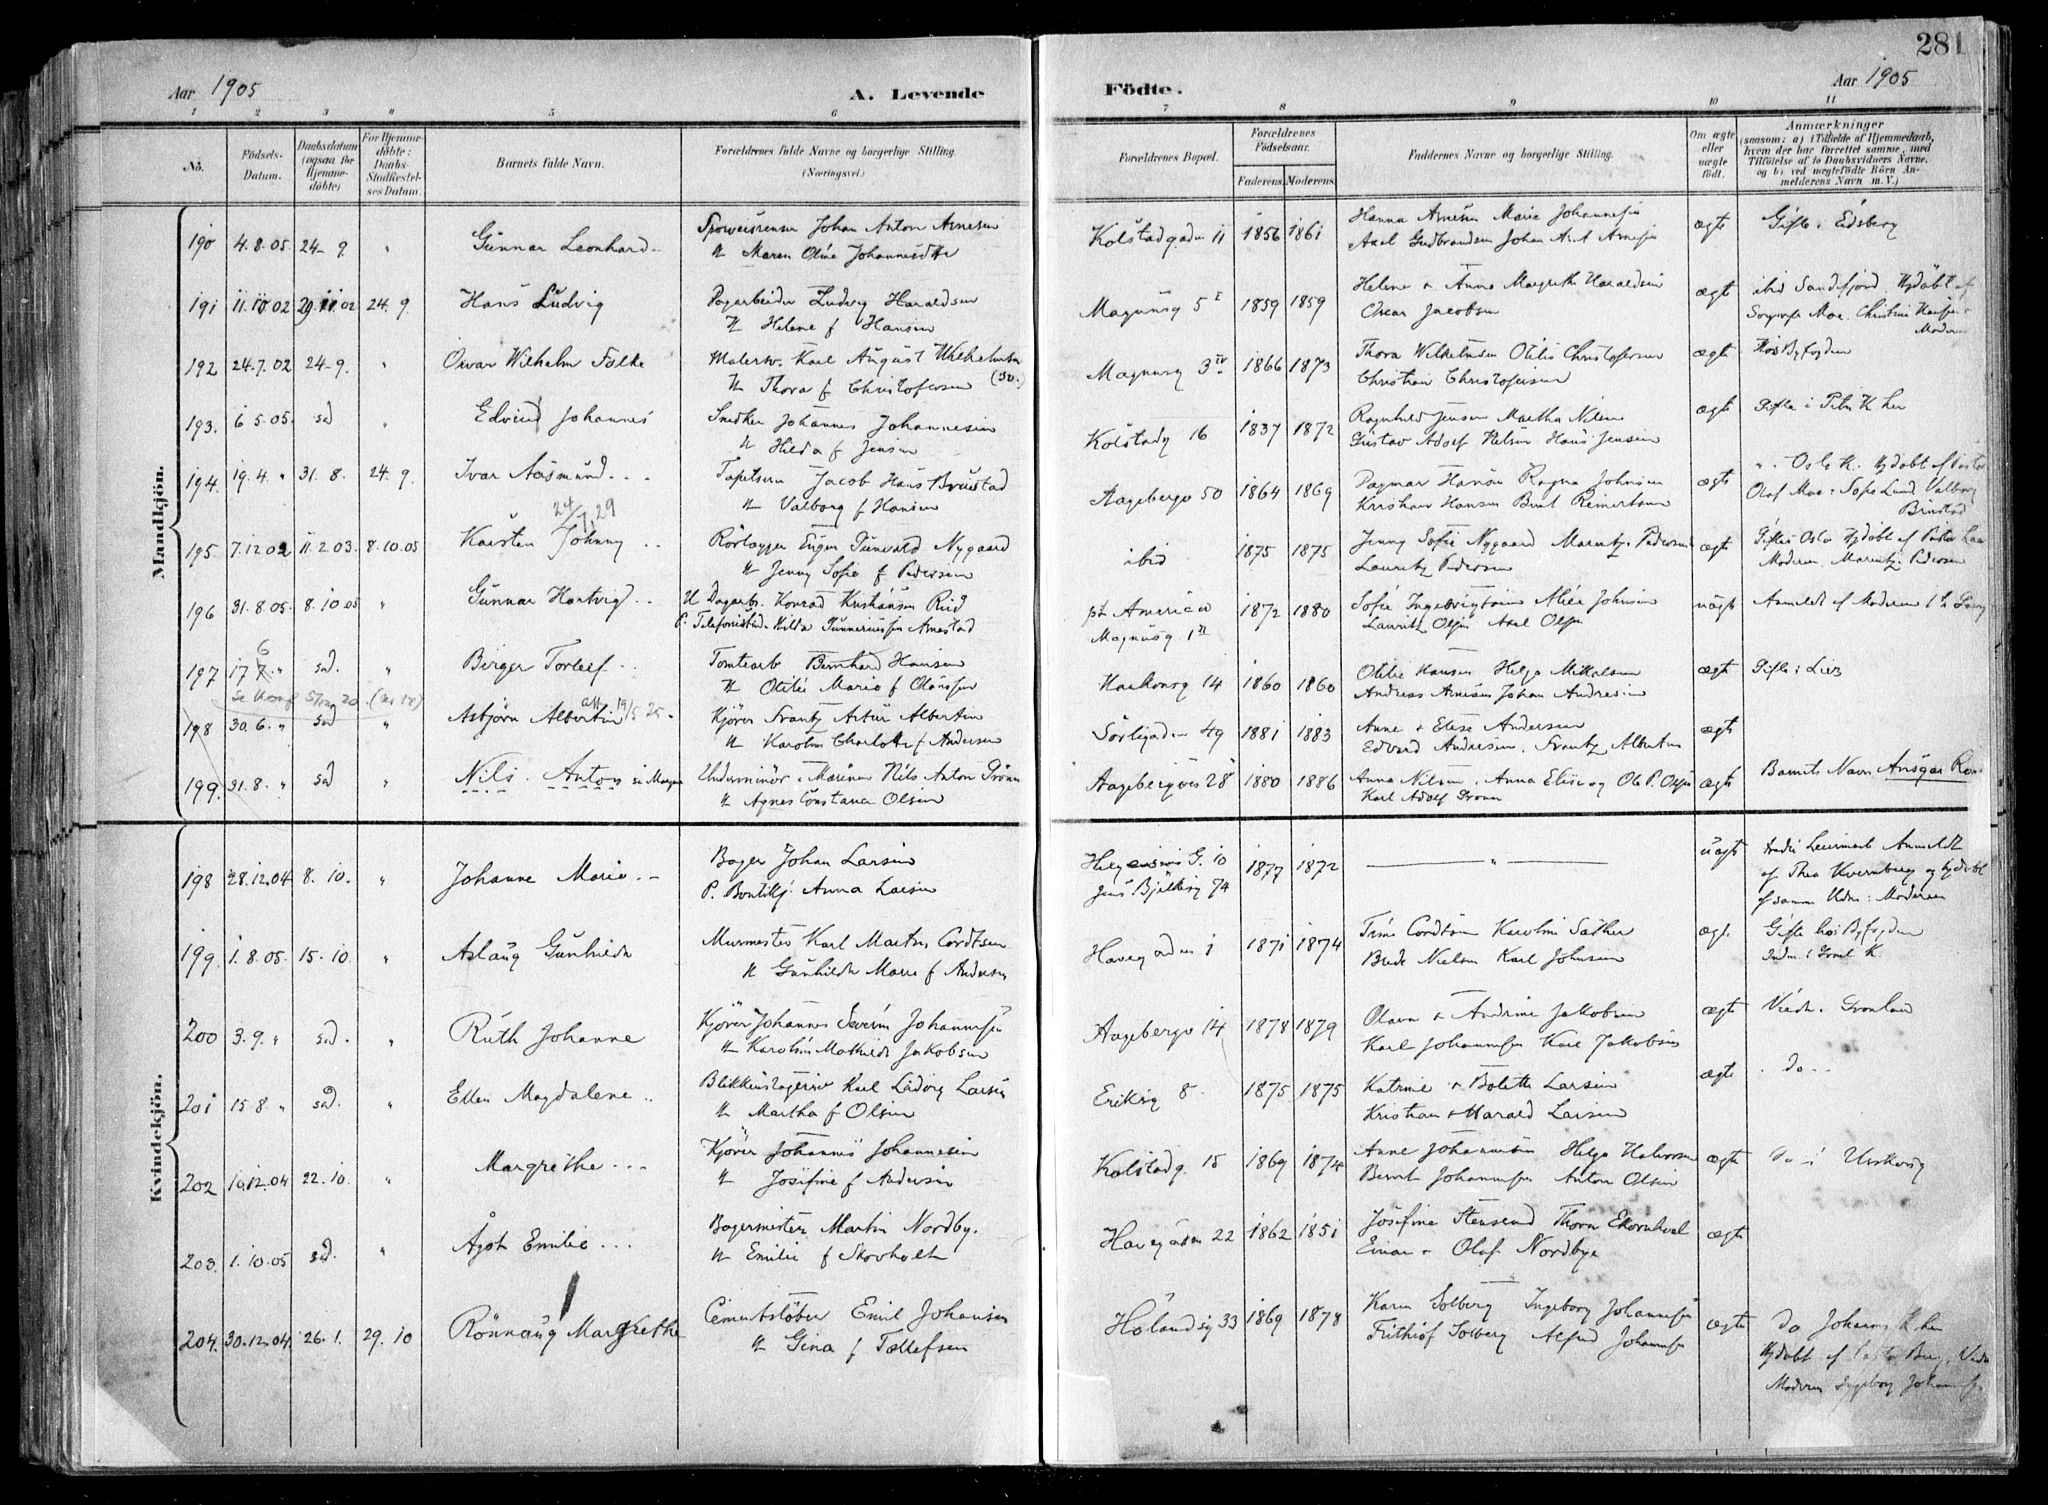 281
Aar 1905
A. Levende
Födte.
Aar 1905
1 2 3 4 5 6 7 8 9 10 11
No.
Födsels-Datum.
Daabsdatum (ogsaa for Hjemme-döbte)
For Hjemme-döbte: Daabs-Stadfæstel-ses Datum.
Barnets fulde Navn.
Forældrenes fulde Navne og borgerlige Stilling. (Næringsvei.)
Forældrenes Bopæl.
Forældrenes Födselsaar.
Faderens. Moderens.
Faddernes Navne og borgerlige Stilling.
Om ægte eller uægte födt.
Anmærkninger
(saasom: a) i Tilfælde af Hjemmedaab, hvem der har forrettet samme, med Tilföielse af to Daabsvidners Navne, og b) ved uægtefödte Börn An-melderens Navn m. V.)
Mandkjön.
190 4.8.05 24-9 " Gunnar Leonhard Sporveisrenser Johan Anton Arnesen
Maren Oline Johannesdtr
Kolstadgaden 11 1856 1861 Hanna Arnesen Marie Johannesen
Axel Gudbrandsen Johan Arnesen
ægte Gifte i Eidsberg
191 11.10.02 29.11.02 24.9. Hans Ludvig Dagarbeider Ludvig Haraldsen
H Helene f Hansen
Magnusg 5 1859 1859 Helene + Anna Margrethe Haraldsen
Oscar Jacobsen
ægte ibid Sandefjord Hjdöbt af
Moe. Christine
Moderen
192 24.7.02 24-9. " Wilhelm Falke Malersv. Karl August Wilhelmsen (Sv.)
H Thora f Christofersen
Magnusg 3 1866 1873 Thora Wilhelmsen Otilie Christofersen
Christian Christofersen
ægte Hos Byfogden
193. 6 5.05. sd " Edvind Johannes Snedker Johannes Johannesen
H Hilda f Jensen
Kolstadg 16 1837 1872 Ragnhild Jensen Martha Nilsen
Gustav Adolf Nelsen Hans Jensen
ægte Gifte i Petri K her
194. 19.4. " 31.8. 24.9. Ivar Aasmund Tapetserer Jacob Hans Brustad
H Valborg f Hansen
Aagebergv 50 1864 1869 Dagmar Hansen Ragna Johnsen
Kristian Hansen Bernt Reinertsen
ægte " Oslo K. Hjdöbt af Pastor
Olaf Moe: Sofie Lund Valborg
Brustad
24/7.29
195 7.12 02 11.2.03. 8.10.05 Karsten Johnny Rörlægger Eugen Gunvald Nygaard
H Jenny Sofie f Pedersen
ibid 1875 1875 Jenny Sofie Nygaard Marentz. Pedersen
Lauritz Pedersen
ægte Gifte i Oslo Hjdöbt af Pastor
Moderen, Marentz. Pedersen
196 31.8.05. 8.10 05 " Gunnar Hartvig U Dagarb. Konrad Kristiansen Ried
P. Telefonistinde Hilda Gunneriusen Arnestad
pt America
Magnusg 1 1872 1880 Sofie Ingebrigtsen Alice Johnsen
Lauritz Olsen Axel Olsen
uægte Anmeldt af Moderen
6
197 17 7. " sd. " Birger Torleif Tomtearb Bernhard Hansen
H Otilie Marie f Olausen
Haakonsg 14 1860 1860 Otilie Hansen Helga Mikalsen
Andreas Arnesen Johan Andresen
ægte Gifte i Lier
198 30.6. " sd " Asbjörn Albertin att 19/5 25 Kjörer Frantz Artur Albertin
H Karoline Charlotte f Andersen
Sörligaden 49 1881 1883 Anne + Elise Andersen
Edvard Andresen. Frantz Albertin
ægte
199. 31.8. " sd " Nils Anton se Margen Underminör i Marinen Nils Anton
H Agnes Constance Olsen
Aagebergveien 28 1880 1886 Anna Nilsen, Anna Elise og Ole P. Olsen
Karl Adolf
ægte Barnets Navn Ansgar
Kvindekjön.
198 28.12.04 8.10. " Johanne Marie Bager Johan Larsen
P. Butikj. Anna Larsen
Helgesens G. 10
Jens Bjelkesg 74 1877 1872 "
uægte Anmeldt
af Thea Kvernberg og hjdöbt
af samme Vidn: Moderen
199. 1.8.05. 15.10. " Aslaug Gunhilde Murmester Karl Martin Cordtsen
H Gunhilde Marie f Andersen
Havegaden 1 1871 1874 Trine Cordtsen Karoline Sæther
Brede Nielsen Karl Johnsen
ægt. Gifte hos Byfogden
200 3.9. " sd. " Ruth Johanne Kjörer Johannes Severin Johannesen
H Karoline Mathilde Jakobsen
Aagebergv 14 1878 1879 Olava + Andrine Jakobsen
Karl Johannesen Karl Jakobsen
ægte Viede i Grönland
201 15.8. " sd. " Ellen Magdalene Blikkenslagersv Karl Ludvig Larsen
H Martha f Olsen
Eriksg 8. 1875 1875 Katrine + Bolette Larsen
Kristian + Harald Larsen
ægte do
202 10.12.04 22.10. " Margrethe Kjörer Johannes Johannesen
H Josefine f Andersen
Kolstadg. 15 1869 1874 Anne Johannesen Helga Halvorsen
Bernt Johannesen Anton Olsen
ægte do i Urskog
203. 1.10.05 sd. " Ågot Emilie Bagermester Martin Nordby.
H Emilie f Skovholt
Havegaden 22 1862 1851 Josefine Stensrud Thora Ekornhoel
Einar + Olaf Nordbye
ægte
204. 30.12.04. 26.1. 29.10 Rönnaug Margrethe Cementstöber Emil Johansen
H Gina f Tollefsen
Hölandsg 33 1869 1878 Karen Solberg Ingeborg Johannesen
Frithiof Solberg Alfred Johannesen
ægte do Johannes K her
Hjdöbt af Pastor
Moderen Ingeborg Johannesen